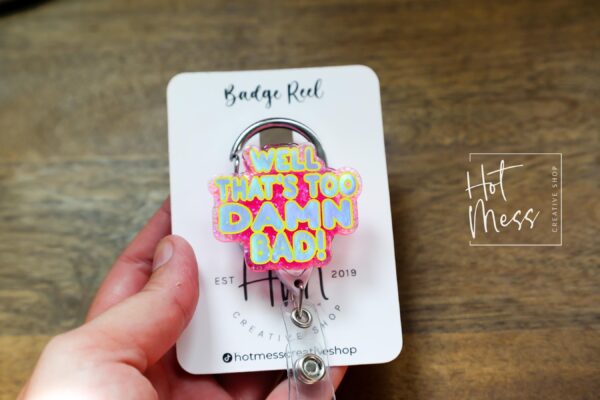 Badge Reel
WELL
THAT'S TOO
DAMN
BAD!
EST 2019
CREATIVE SHOP
hotmesscreativeshop
Hot
Mess
CREATIVE SHOP